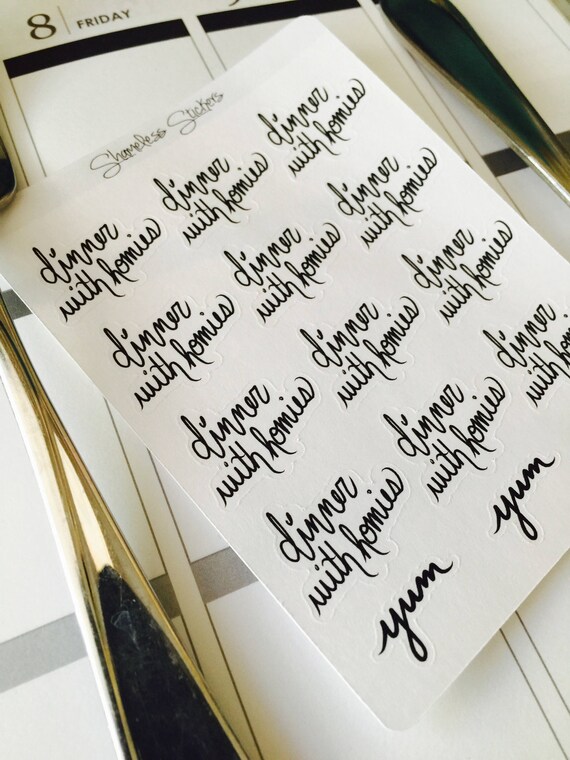 8 FRIDAY
Shameless Stickers
dinner
with homies
dinner
with homies
dinner
with homies
dinner
with homies
dinner
with homies
dinner
with homies
dinner
with homies
dinner
with homies
dinner
with homies
dinner
with homies
dinner
with homies
dinner
with homies
yum
yum